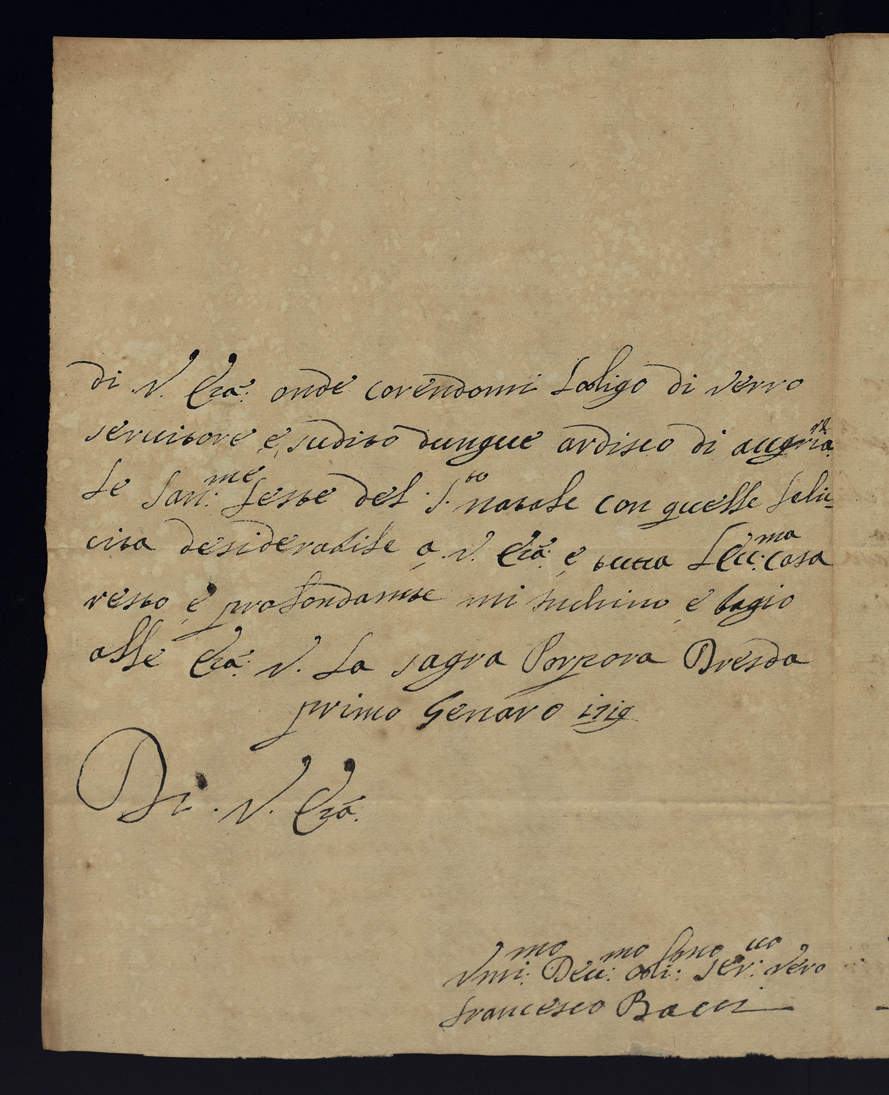 di V. Ecza: onde corendomi lobligo di verro
servitore e, sudito dunque ardisco di augria
le San:me feste del S.to natale con quelle felii
cita desiderabile a V. Ecza: e tutta L'Ecc:ma Casa
resto e profondamte mi Inchino e bagio
alle Ecza: V. La sagra Porpora Bresda
primo Genaro 1719
Di. V. Ecza.
Vmi:mo Deu:mo obli: Ser: vero
Francesco Bacci